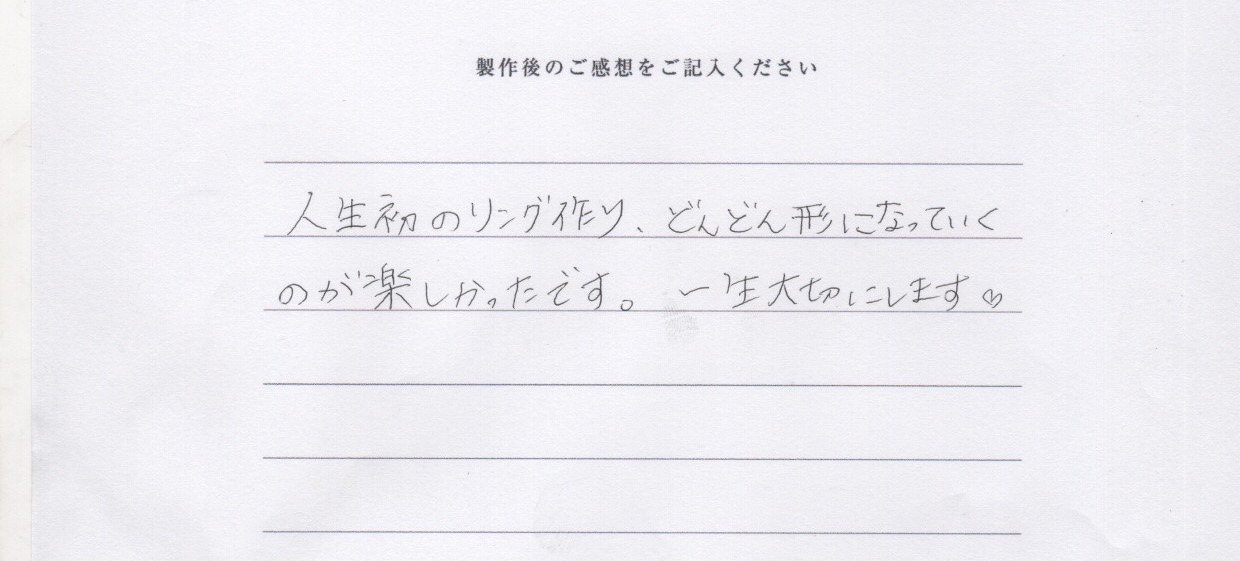 製作後のご感想をご記入ください
人生初のリング作り、どんどん形になっていく
のが楽しかったです。 一生大切にします♡